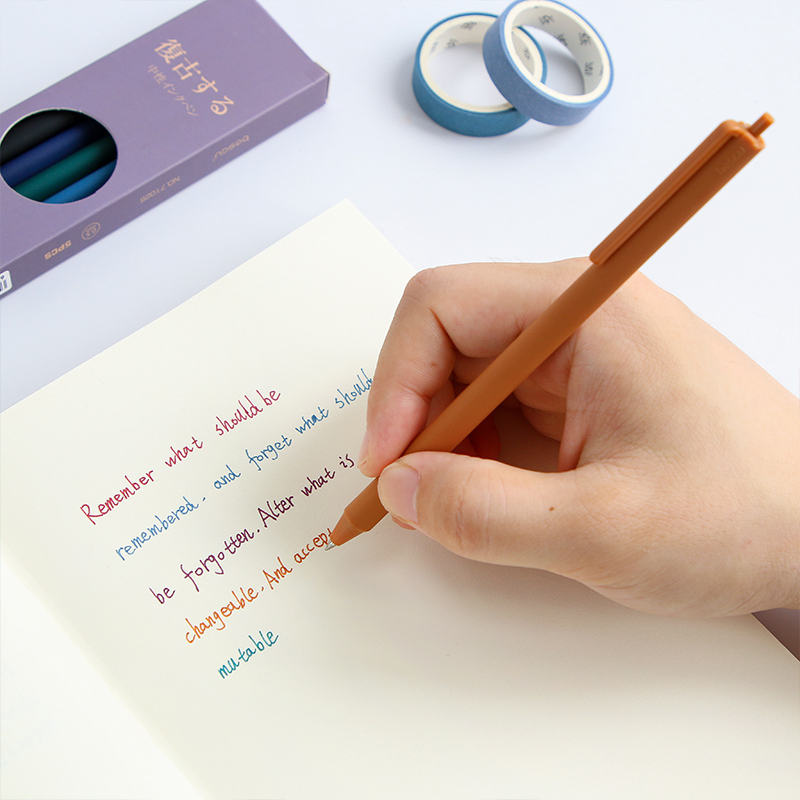 復古する
中性インクペン
basou
NO.71028
5PCS
Remember what should be
remembered. and forget what should
be forgotten. Alter what is
changeable. And accept
mutable